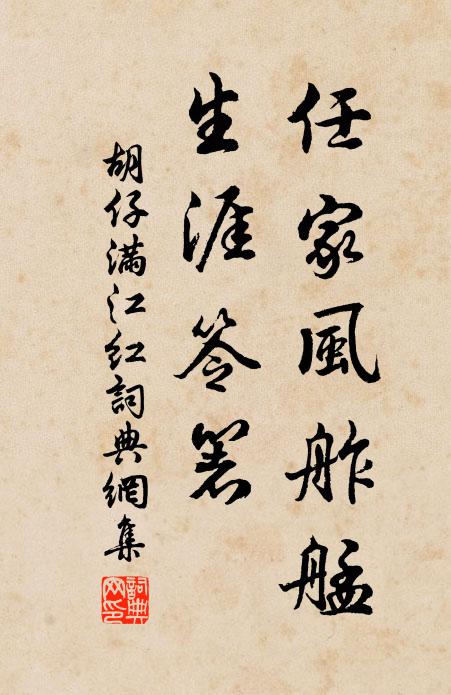 任家風舴艋
生涯笭箵
胡仔满江红詞典網集
詞典網印